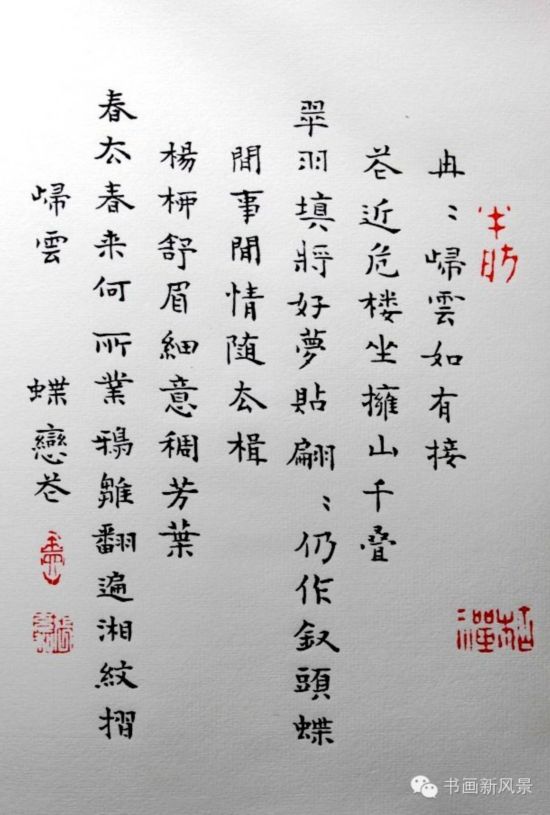 冉〻歸雲如有接
苍近危楼坐擁山千疊
翠羽填將好夢貼翩〻仍作釵頭蝶
閒事閒情随厺楫
楊柳舒眉細意稠芳葉
春厺春来何所業鴉雛翻遍湘紋摺
歸雲 蝶戀花
书画新风景